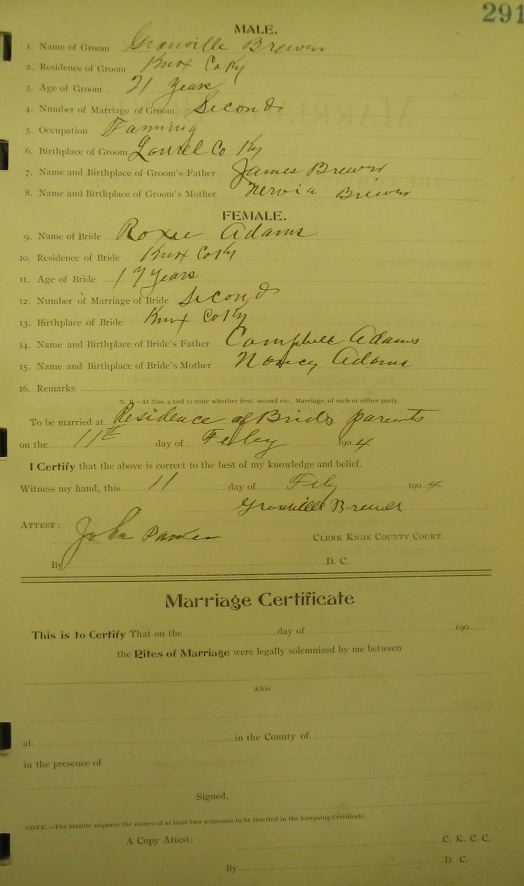 291
MALE.
1. Name of Groom Granville Brewer
2. Residence of Groom Knox Co Ky
3. Age of Groom 21 Years
4. Number of Marriage of Groom Second
5. Occupation Farming
6. Birthplace of Groom Laurel Co Ky
7. Name and Birthplace of Groom's Father James Brewer
8. Name and Birthplace of Groom's Mother Nervia Brewer
FEMALE.
9. Name of Bride Roxie Adams
10. Residence of Bride Knox Co Ky
11. Age of Bride 17 Years
12. Number of Marriage of Bride Second
13. Birthplace of Bride Knox Co Ky
14. Name and Birthplace of Bride's Father Campbell Adams
15. Name and Birthplace of Bride's Mother Nancy Adams
16. Remarks
N. B.—At Nos. 4 and 12 state whether first, second etc., Marriage, of each or either party.
To be married at Residence of Brids parents
on the 11th day of Feby 190 4
I Certify that the above is correct to the best of my knowledge and belief.
Witness my hand, this 11 day of Feby 190 4
Granville Brewer
ATTEST:
John
CLERK KNOX COUNTY COURT.
By D. C.
Marriage Certificate
This is to Certify That on the day of 190
the Rites of Marriage were legally solemnized by me between
AND
at in the County of
in the presence of
Signed,
NOTE.—The Statute requires the names of at least two witnesses to be inserted in the Foregoing Certificate.
A Copy Attest: C. K. C. C.
By D. C.